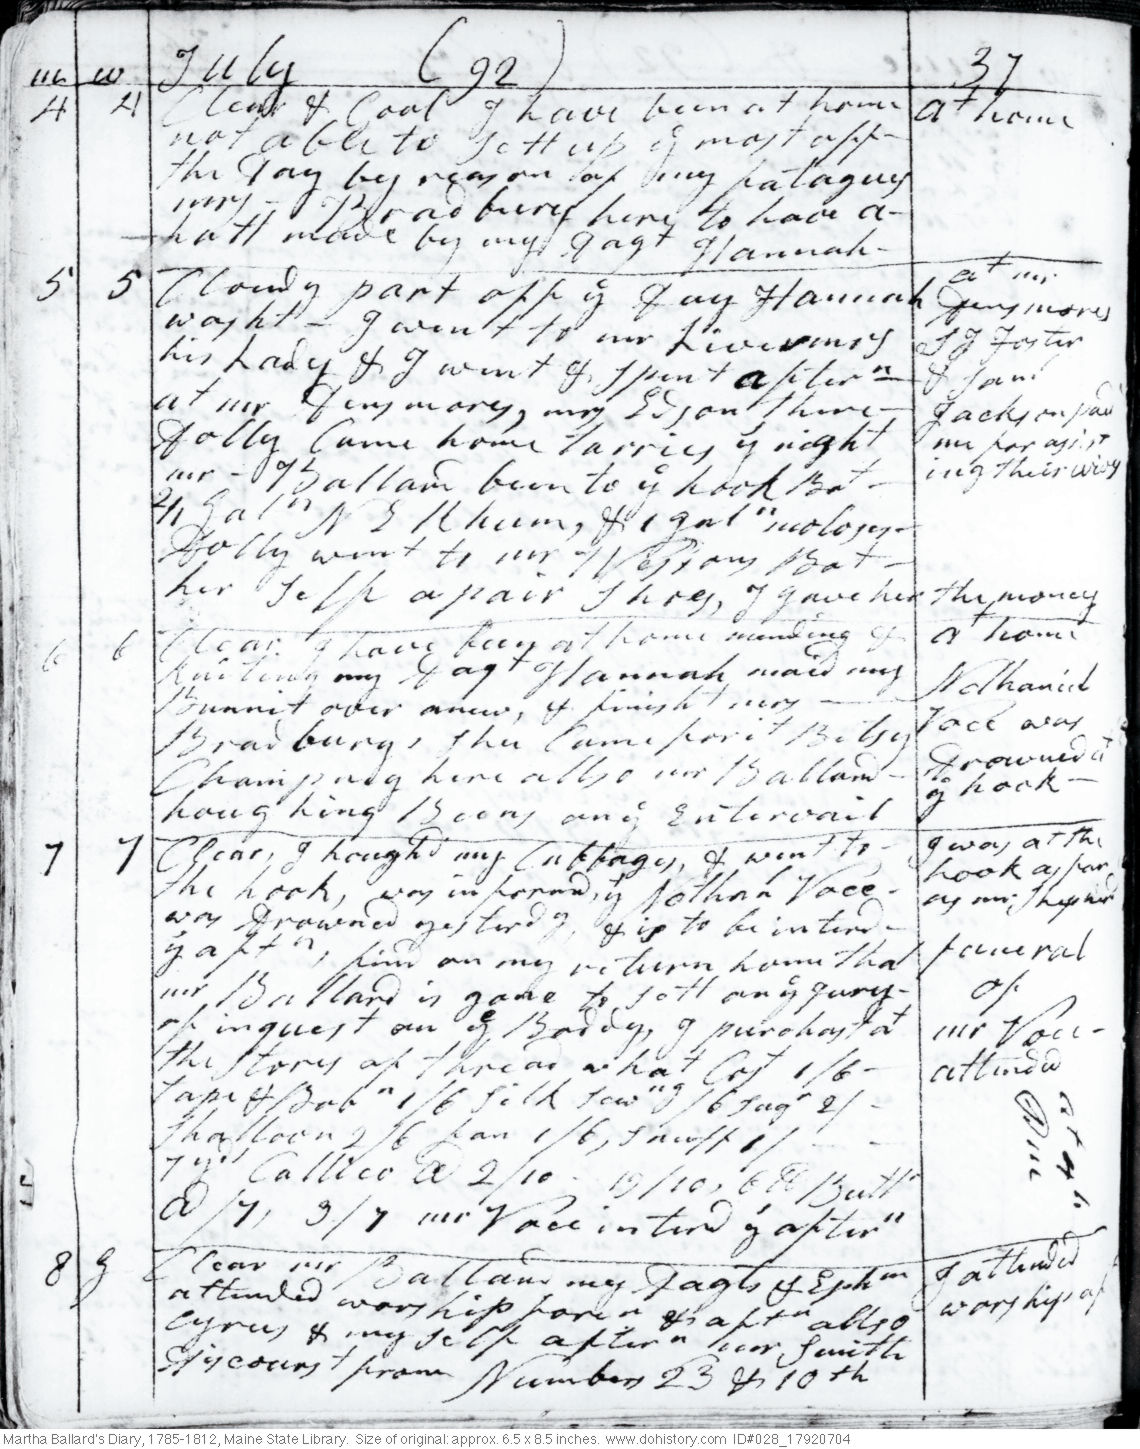 m w July (92) 37
4 4 Clear & Cool I have been at home
not able to sett up ye most off
the Day by reason of my fatagues
mrs Bradbury here to have a
hatt made by my Dagt Hannah
at home
5 5 Cloudy part off ye Day Hannah
washt I went to mr Livermors
his Lady & I went & spent aftern
at mr Densmores, mrs Edson there
Dolly Came home tarries ye night
mr Ballard been to ye hook Bot
2/1 Galn N E Rhum, & 1 galn moloses
Dolly went to mr Wessons Bot
her self a pair Shoes, I gave her the money
at mr
Densmores
SJ Foster
& Sam
Jackson paid
me for asist
ing their wivs
6 6 Clear I have been at home mending &
knitting my Dagt Hannah maid my
Bunnit over anew, & finisht mrs
Bradburys shee Came for it Betsy
Champney here allso mr Ballard
houghing Beens on ye Entervail
at home
Nathaniel
Voce was
Drowned at
ye hook
7 7 Clear, I hough'd my Cabbages, & went to
the hook, was informd, yt Nathan Voce
was Drowned yesterdy, & is to be interd
ye aftn, find on my return home that
mr Ballard is gone to sett on ye jury
of inquest on ye Boddy, I purchast at
the stores of thread what Cost 1/6
Tape & Bobn 1/6 Silk Sewng /6 Sugr 2/
Shalloon 2/6 fan 1/6, snuff 1/
7 yds Callico @ 2/10 19/10, 6 lb Buttr
@ /7, 3/7 mr Voce interd ye aftern
I was at the
hook as far
as mr Sheperd
funeral
of
mr Voce
attended
8 g Clear mr Ballard my Dagts & Ephm
attended worship foren & aftn allso
Cyrus & my self aftern mr Smith
Discourst from Numbers 23 & 10th
I attended
worship af
Martha Ballard's Diary, 1785-1812, Maine State Library. Size of original: approx. 6.5 x 8.5 inches. www.dohistory.com ID#028_17920704